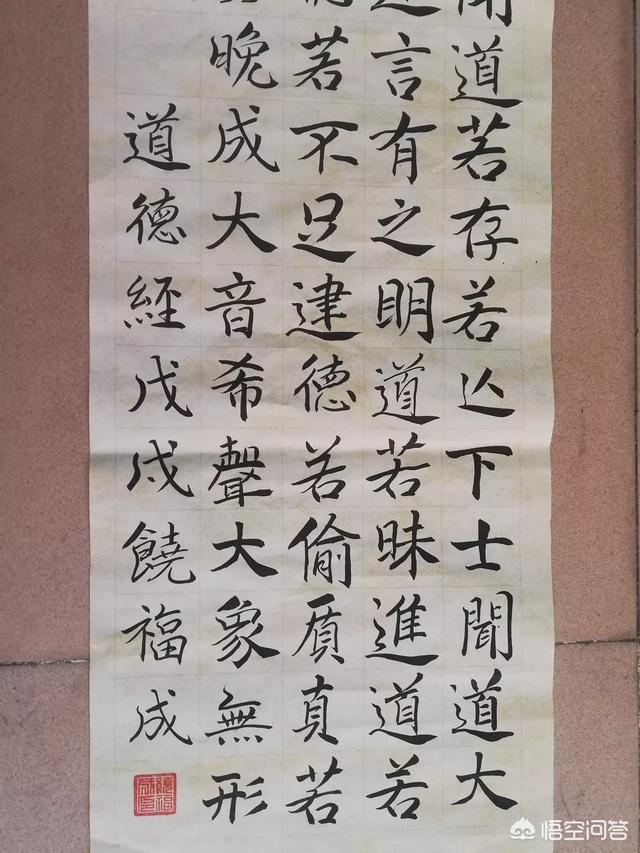 道若存若亾下士聞道大
言有之明道若昧進道若
若不足建德若偷質真若
晚成大音希聲大象無形
道德經戊戌饒福成
悟空问答